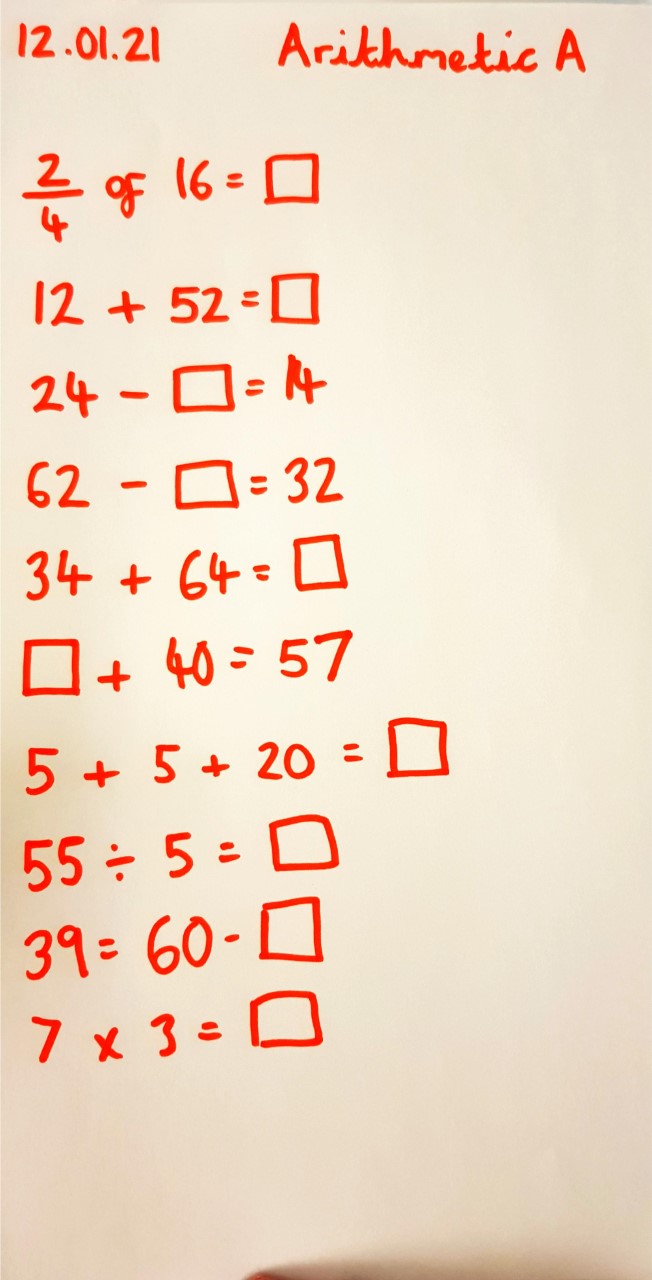 12.01.21 Arithmetic A
2/4 of 16 = □
12 + 52 = □
24 - □ = 14
62 - □ = 32
34 + 64 = □
□ + 40 = 57
5 + 5 + 20 = □
55 ÷ 5 = □
39 = 60 - □
7 x 3 = □